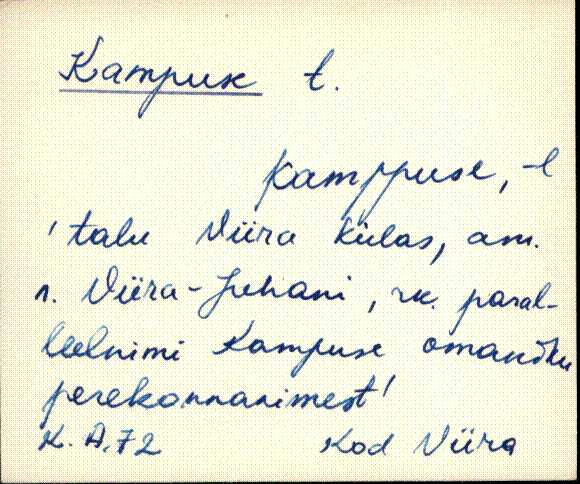 Kampuse t.
kamppuse, -l
'talu Viira külas, am.
n. Viira-Juhani, rk. paral-
leelnimi Kampuse omaniku
perekonnanimest'
K. A. 72 Kod Viira